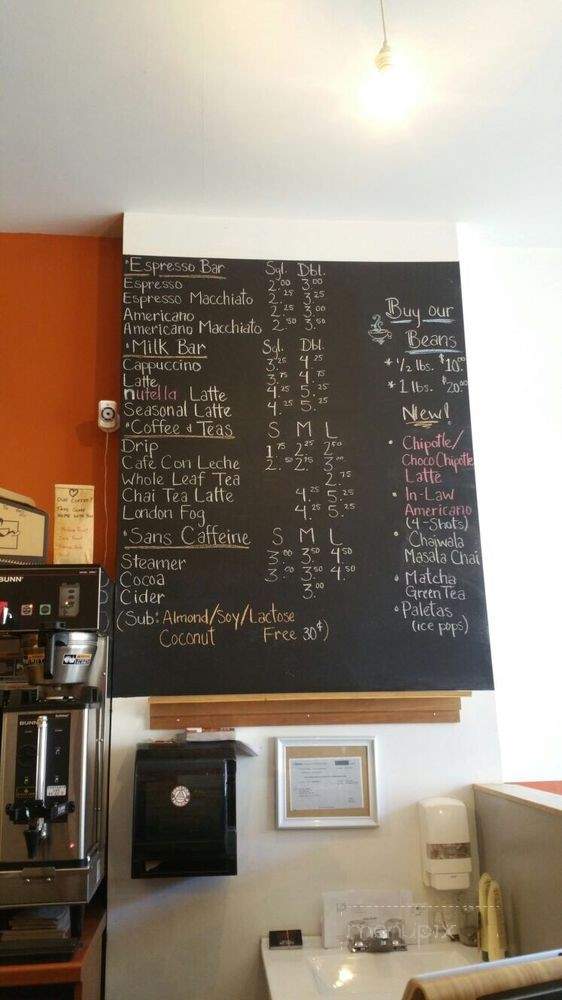 Espresso Bar Sgl. Dbl.
Espresso 2.00 3.00
Espresso Macchiato 2.25 3.25
Americano 2.25 3.00
Americano Macchiato 2.50 3.50
Milk Bar Sgl. Dbl.
Cappuccino 3.25 4.25
Latte 3.75 4.75
nutella Latte 4.25 5.25
Seasonal Latte 4.25 5.25
Coffee & Teas S M L
Drip 1.75 2.25 2.50
Cafe Con Leche 2.50 2.75 3.00
Whole Leaf Tea 2.75
Chai Tea Latte 4.25 5.25
London Fog 4.25 5.25
Sans Caffeine S M L
Steamer 3.00 3.50 4.50
Cocoa 3.00 3.50 4.50
Cider 3.00
(Sub: Almond/Soy/Lactose
Coconut Free 30¢)
Buy our
Beans
* 1/2 lbs. $10.00
* 1 lbs. $20.00
New!
• Chipotle/
Choco Chipotle
Latte
• In-Law
Americano
(4-Shots)
• Chaiwala
Masala Chai
• Matcha
Green Tea
• Paletas
(ice pops)
BUNN
BUNN
menupix